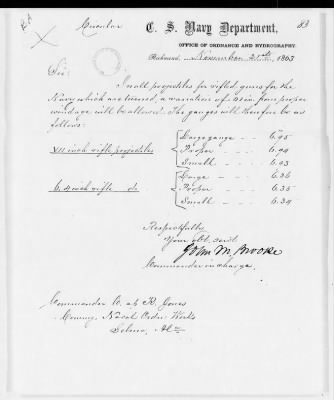 Circular C. S. Navy Department, 83
OFFICE OF ORDNANCE AND HYDROGRAPHY,
Richmond, November 25th 1863
Sir:
In all projectiles for rifled guns for the
Navy which are turned, a variation of .01 in from proper
windage will be allowed. The gauges will therefore be as
follows:
Large gauge - - - 6.95
VII inch rifle projectiles Proper - - - 6.94
Small - - - 6.93
Large - - - 6.36
6.4 inch rifle do Proper - - - 6.35
Small - - - 6.34
Respectfully
Your obt. servt
John M. Brooke
Commander in charge.
Commander C. ap R. Jones
Comdg. Naval Ordn. Works
Selma, Ala